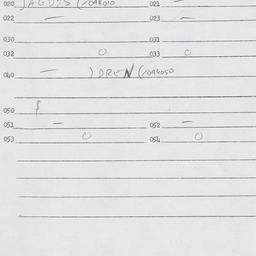 020 JAGUIS (/094010 021 —
022 — 023 —
030 031
032 0 033 0
040 — JDREN (/094050
050 $
051 — 052 —
053 0 054 0